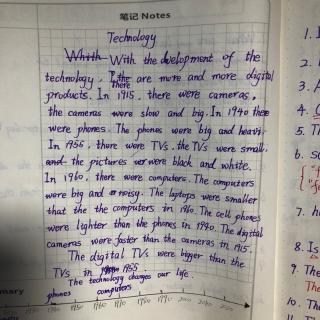 笔记 Notes
Technology
With the development of the
technology. There are more and more digital
products. In 1915, there were cameras,
the cameras were slow and big. In 1940 there
were phones. The phones were big and heavi.
In 1955, there were TVs. the TVs were small.
and the pictures were black and white.
In 1960, there were computers. The computers
were big and noisy. The laptops were smaller
that the computers in 1960. The cell phones
were lighter than the phones in 1940. The digital
cameras were faster than the cameras in 1915.
The digital TVs were bigger than the
TVs in 1955.
The technology changes our life.
phones computers
mmary
1. I
2.
3. A
4.
5. Th
6. S
7. h
8. Is
9. The
The
10. The